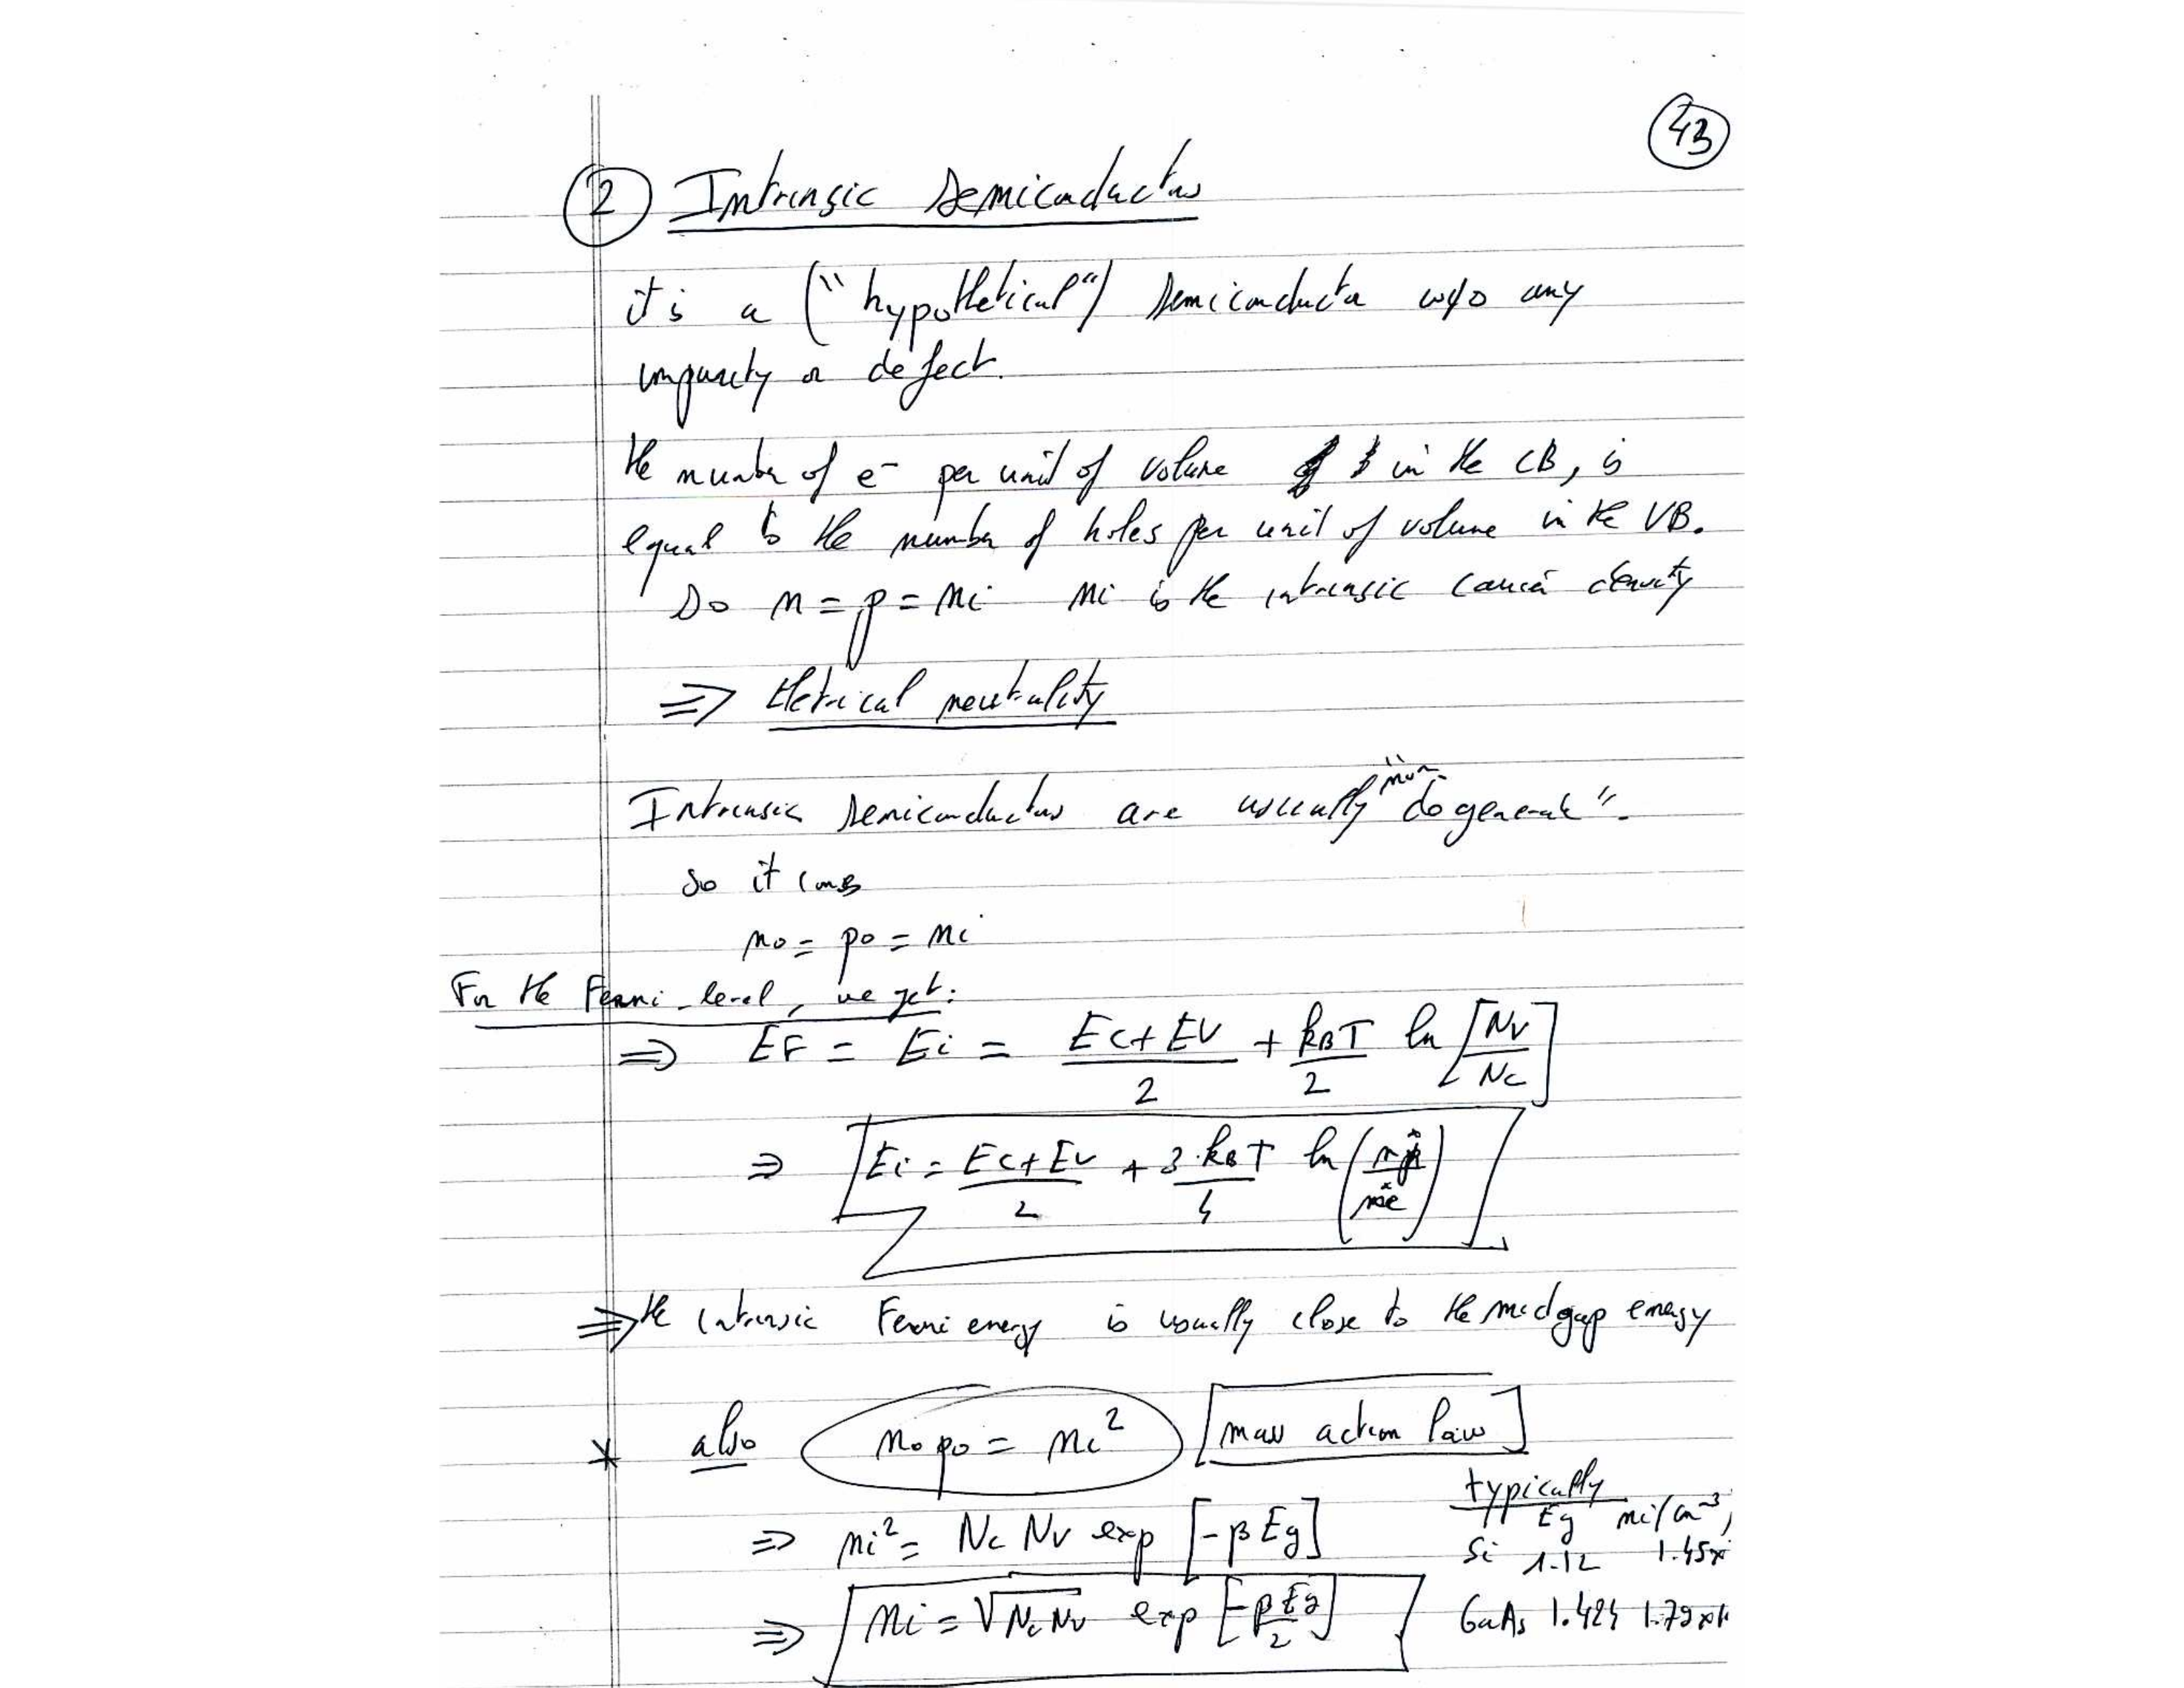 43
2 Intrinsic Semiconductors
it is a ("hypothetical") semiconductor w/o any
impurity or defect.
the number of e⁻ per unit of volume in the CB, is
equal to the number of holes per unit of volume in the VB.
So n = p = ni ni is the intrinsic carrier density
⇒ Eletrical neutrality
Intrinsic semiconductors are usually "non-degenerate".
so it comes
no = po = ni
For the Fermi-level, we get:
⇒ EF = Ei = (Ec + EV)/2 + kBT/2 ln [Nv/Nc]
⇒ Ei = (Ec + Ev)/2 + 3·kBT/4 ln (m*h/m*e)
⇒ the intrinsic Fermi energy is usually close to the midgap energy
* also no po = ni² [mass action law]
typically
Eg ni(cm⁻³)
⇒ ni² = Nc Nv exp [-β Eg]
Si 1.12 1.45x
⇒ ni = √NcNv exp [-β Eg/2]
GaAs 1.424 1.79x1